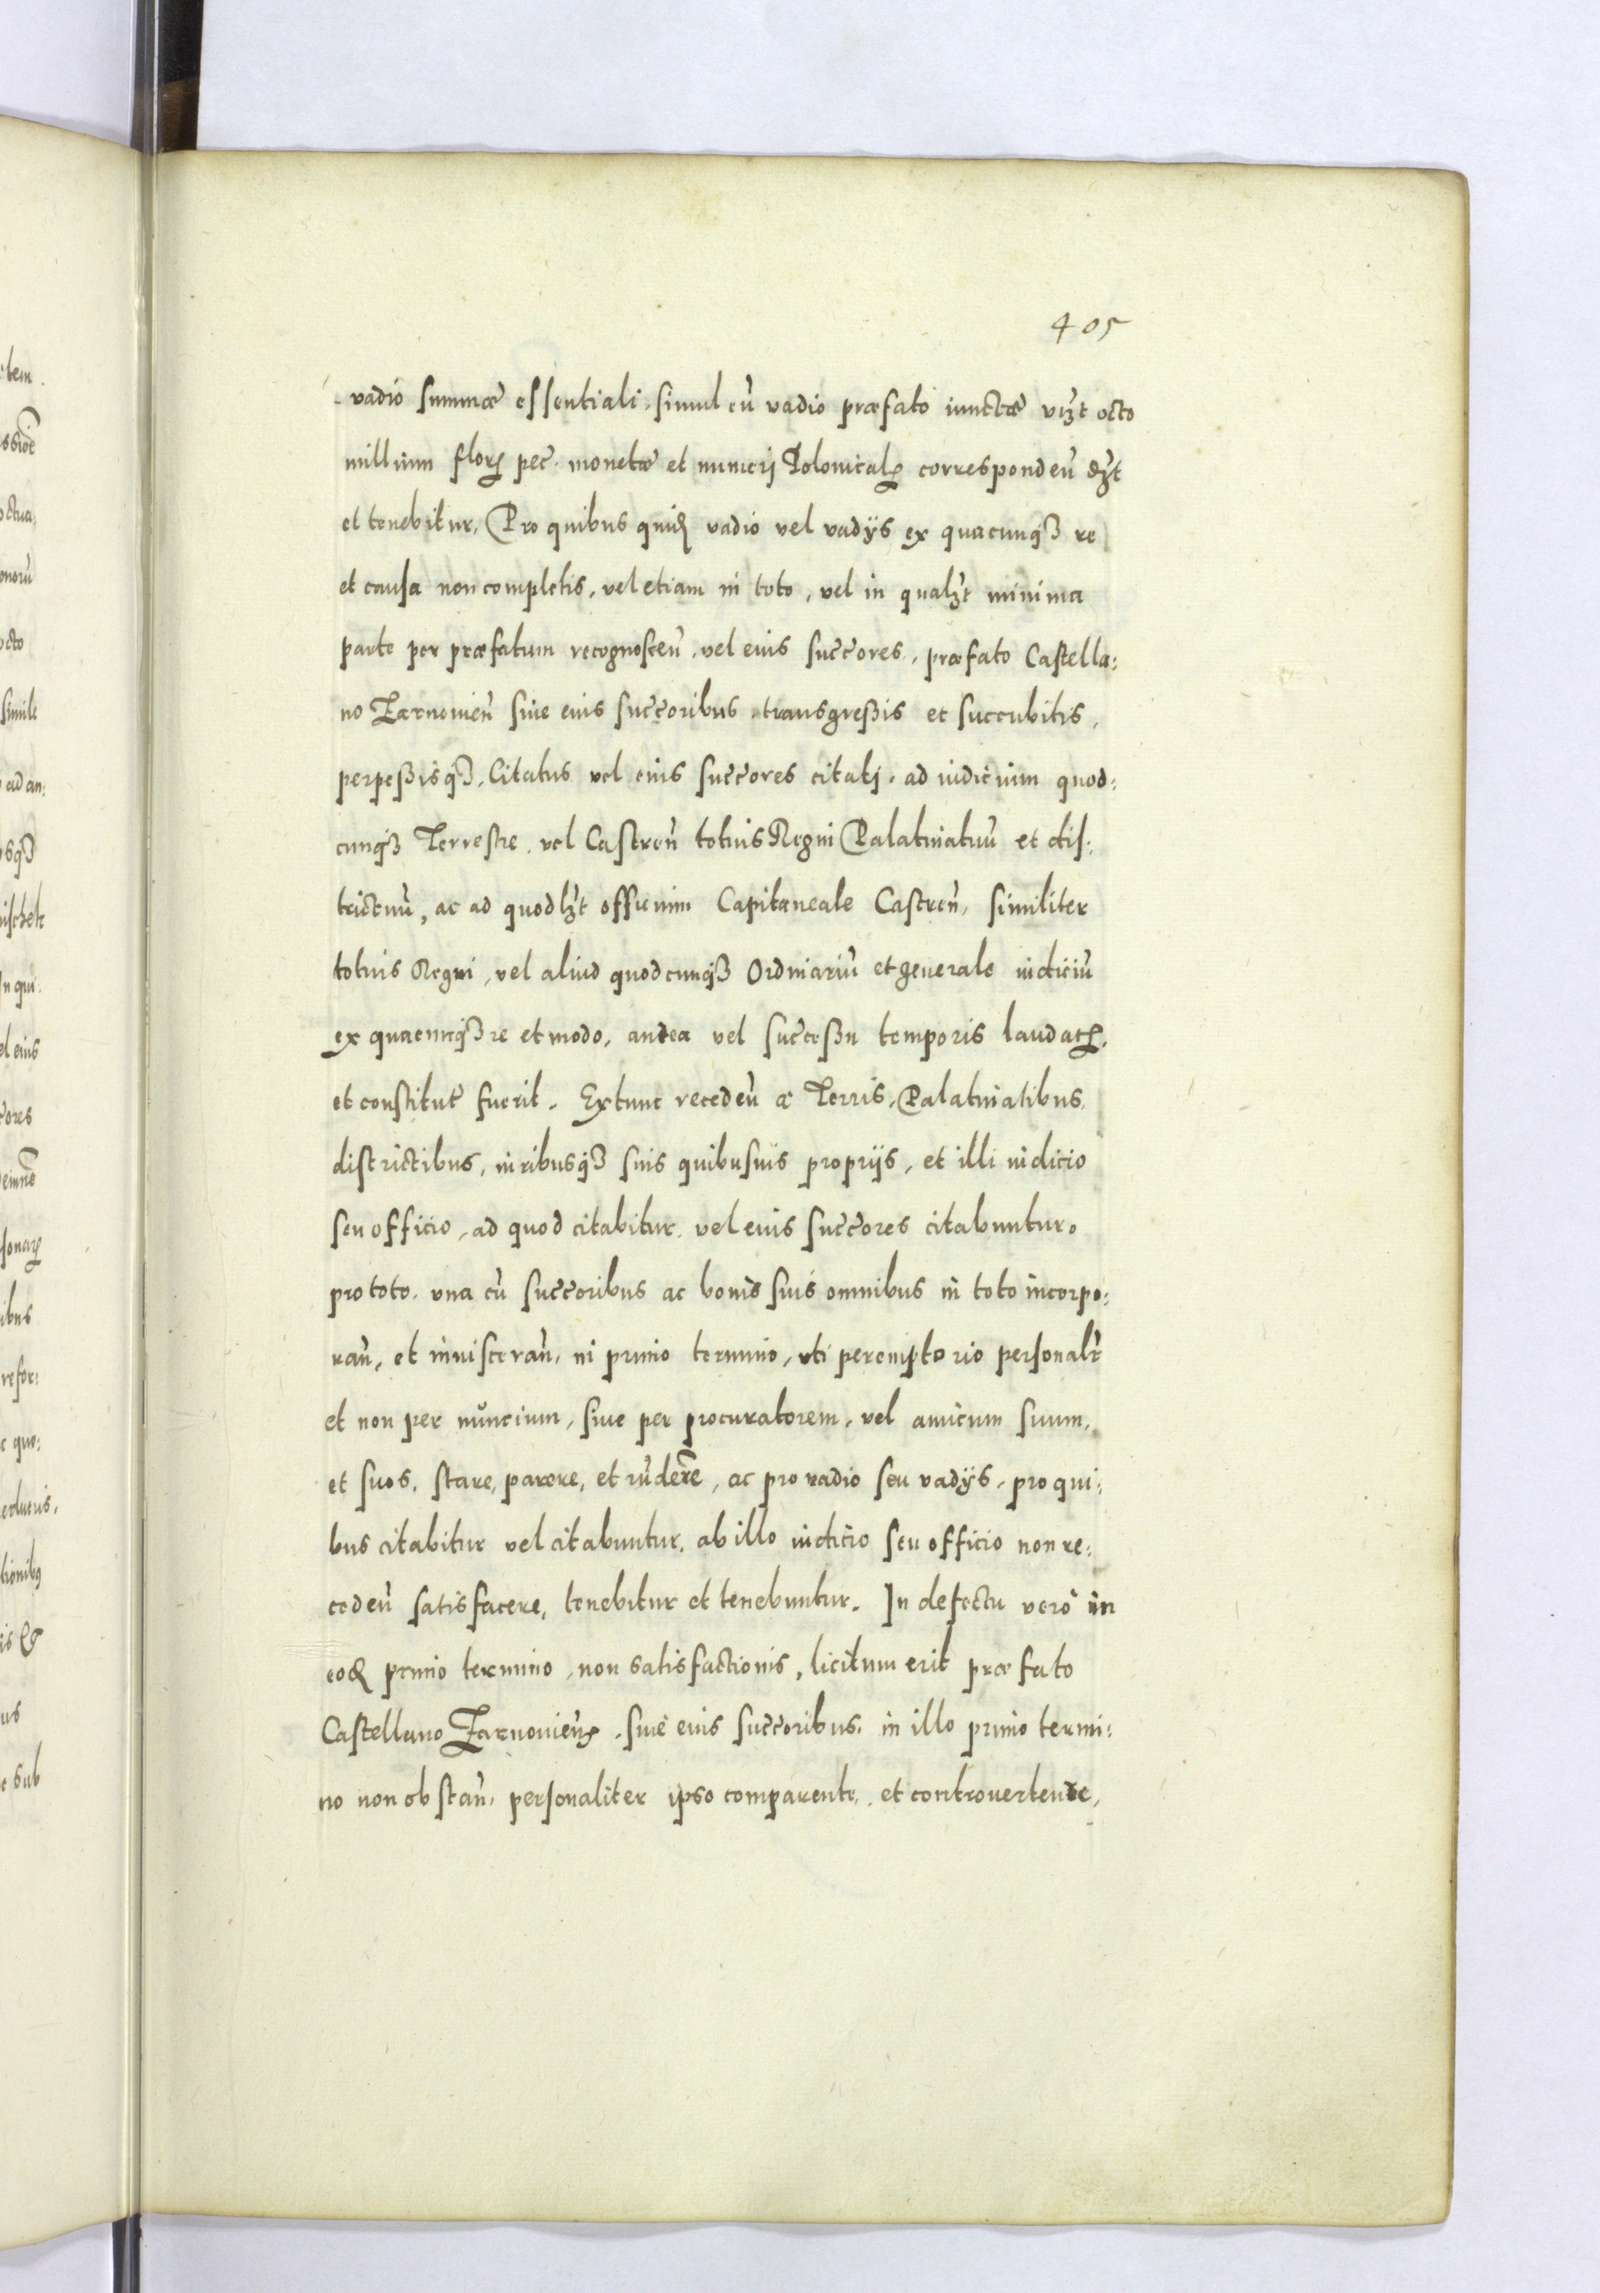 405
vadio summæ essentiali, simul cū vadio præfato iunctæ vizt octo
millium florꝝ pec̄. monetæ et numeri Polonicalꝭ correspondeū dꝫt
et tenebitur. Pro quibus quidꝫ vadio vel vadÿs ex quacunqꝫ re
et causa non completis, vel etiam in toto, vel in qualꝫt minima
parte per præfatum recognosceū, vel eius succ̄ores, præfato Castella:
no Zarnovieñ sive eius succ̄oribus transgreßis et succubitis,
perpeßisqꝫ, Citatus vel eius succ̄ores citati, ad iudicium quod:
cunqꝫ Terrestre, vel Castreñ totius Regni Palatinatuū et dis:
trictuū, ac ad quodlꝫt officium Capitaneale Castreñ, similiter
totius Regni, vel aliud quodcunqꝫ Ordinariū et generale iudiciū
ex quacunqꝫ re et modo, antea vel succ̄eßu temporis laudatꝭ,
et constitut̄ fuerit. Extunc recedeū a Terris, Palatinatibus,
districtibus, iuribusqꝫ suis quibusvis proprijs, et illi iudicio
seu officio, ad quod citabitur, vel eius succ̄ores citabuntur,
pro toto, una cū succ̄oribus ac bonis suis omnibus in toto incorpo:
rañ, et inviscerañ, in primo termino, uti peremptorio personalr̄
et non per nuncium, sive per procuratorem, vel amicum suum,
et suos, stare, parere, et rūdere, ac pro vadio seu vadÿs, pro qui:
bus citabitur vel citabuntur, ab illo iudicio seu officio non re:
cedeū satisfacere, tenebitur et tenebuntur. In defectu vero in
eodꝫ primo termino, non satisfactionis, licitum erit præfato
Castellano Zarnovienꝭ, sive eius succ̄oribus, in illo primo termi:
no non obstañ, personaliter ipso comparente, et controvertente,